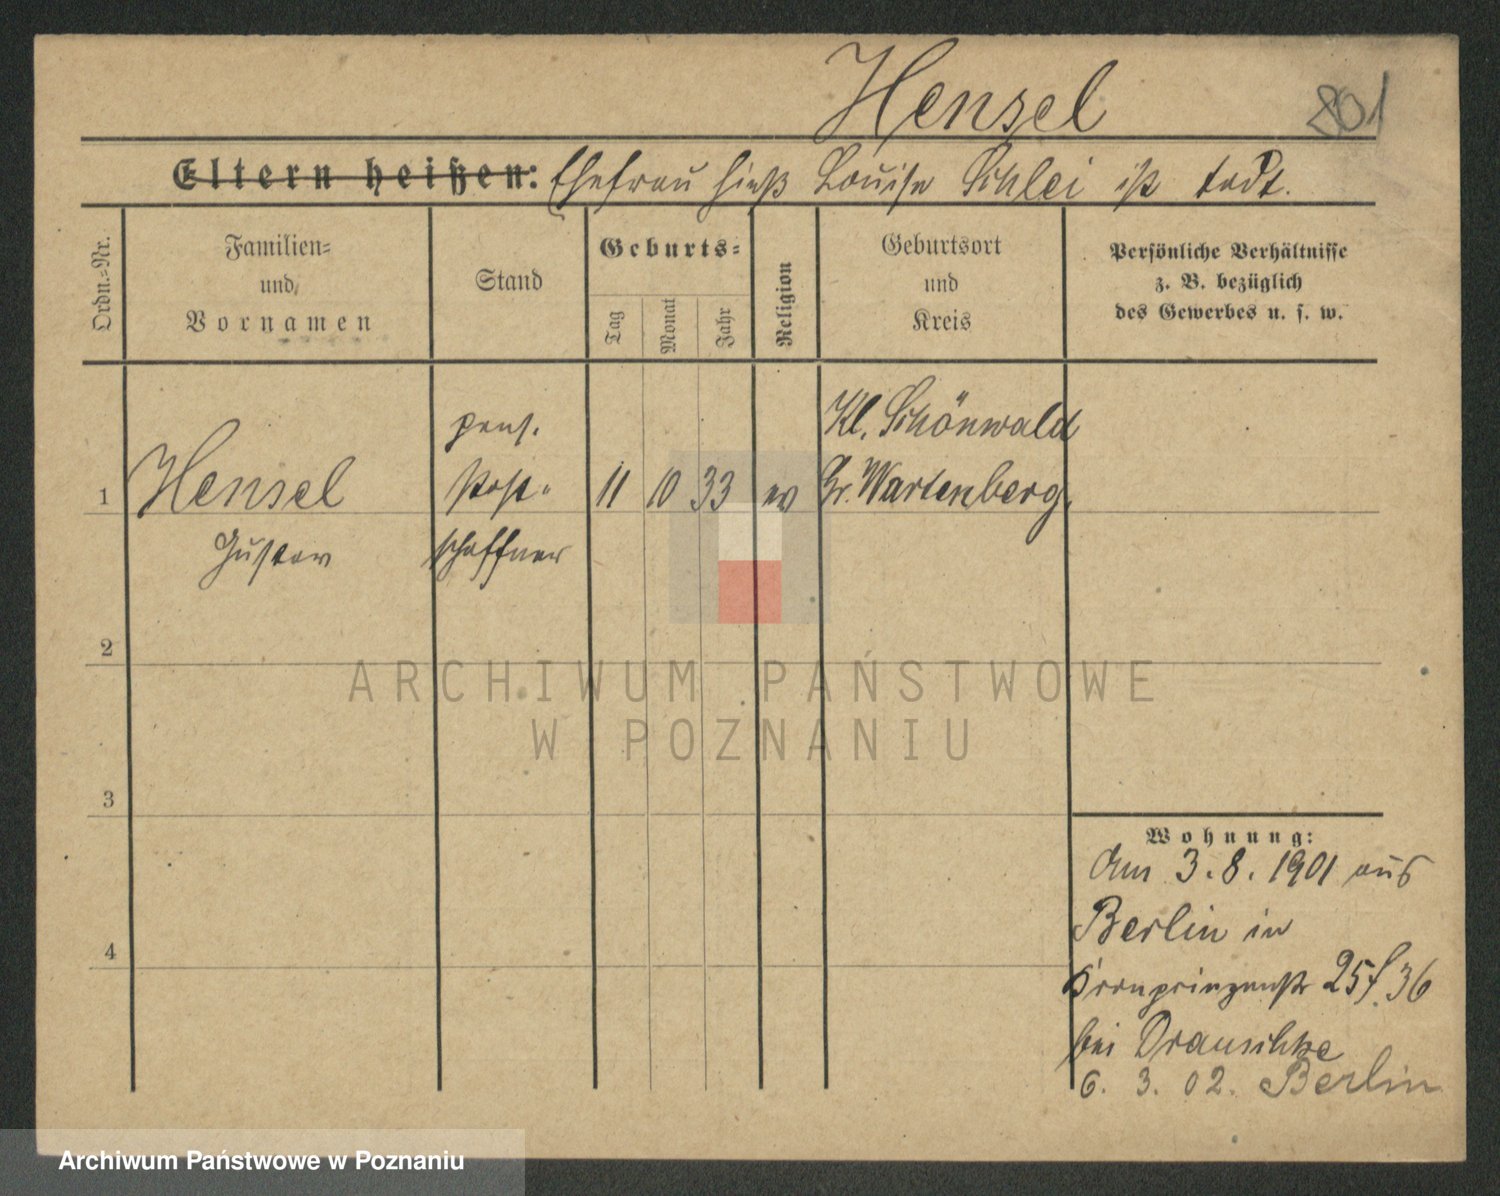 Hensel
801
Eltern heißen: Ehefrau hieß Louise Schlei ist todt.
Ordn.-Nr.
Familien-
und
Vornamen
Stand
Geburts-
Tag
Monat
Jahr
Religion
Geburtsort
und
Kreis
Persönliche Verhältnisse
z. B. bezüglich
des Gewerbes u. s. w.
1 Hensel
Gustav
pens.
Post-
schaffner
11 10 33 ev
Kl. Schönwald
Gr. Wartenberg.
2
3
4
ARCHIWUM PAŃSTWOWE
W POZNANIU
Wohnung:
Am 3.8.1901 aus
Berlin in
Kronprinzenstr 25f. 36
bei Drauschke
6. 3. 02. Berlin
Archiwum Państwowe w Poznaniu